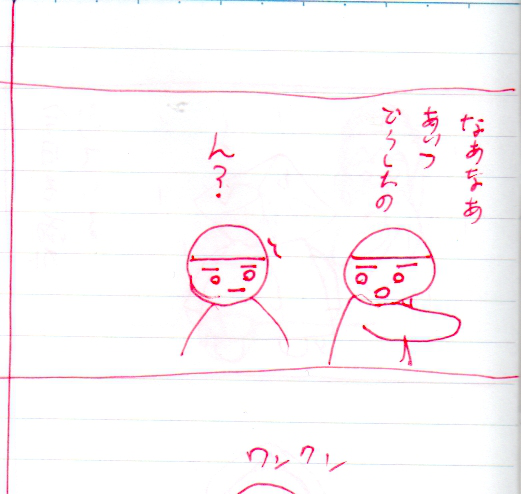 なあなあ
あいつ
どうしたの
ん?
ワンワン